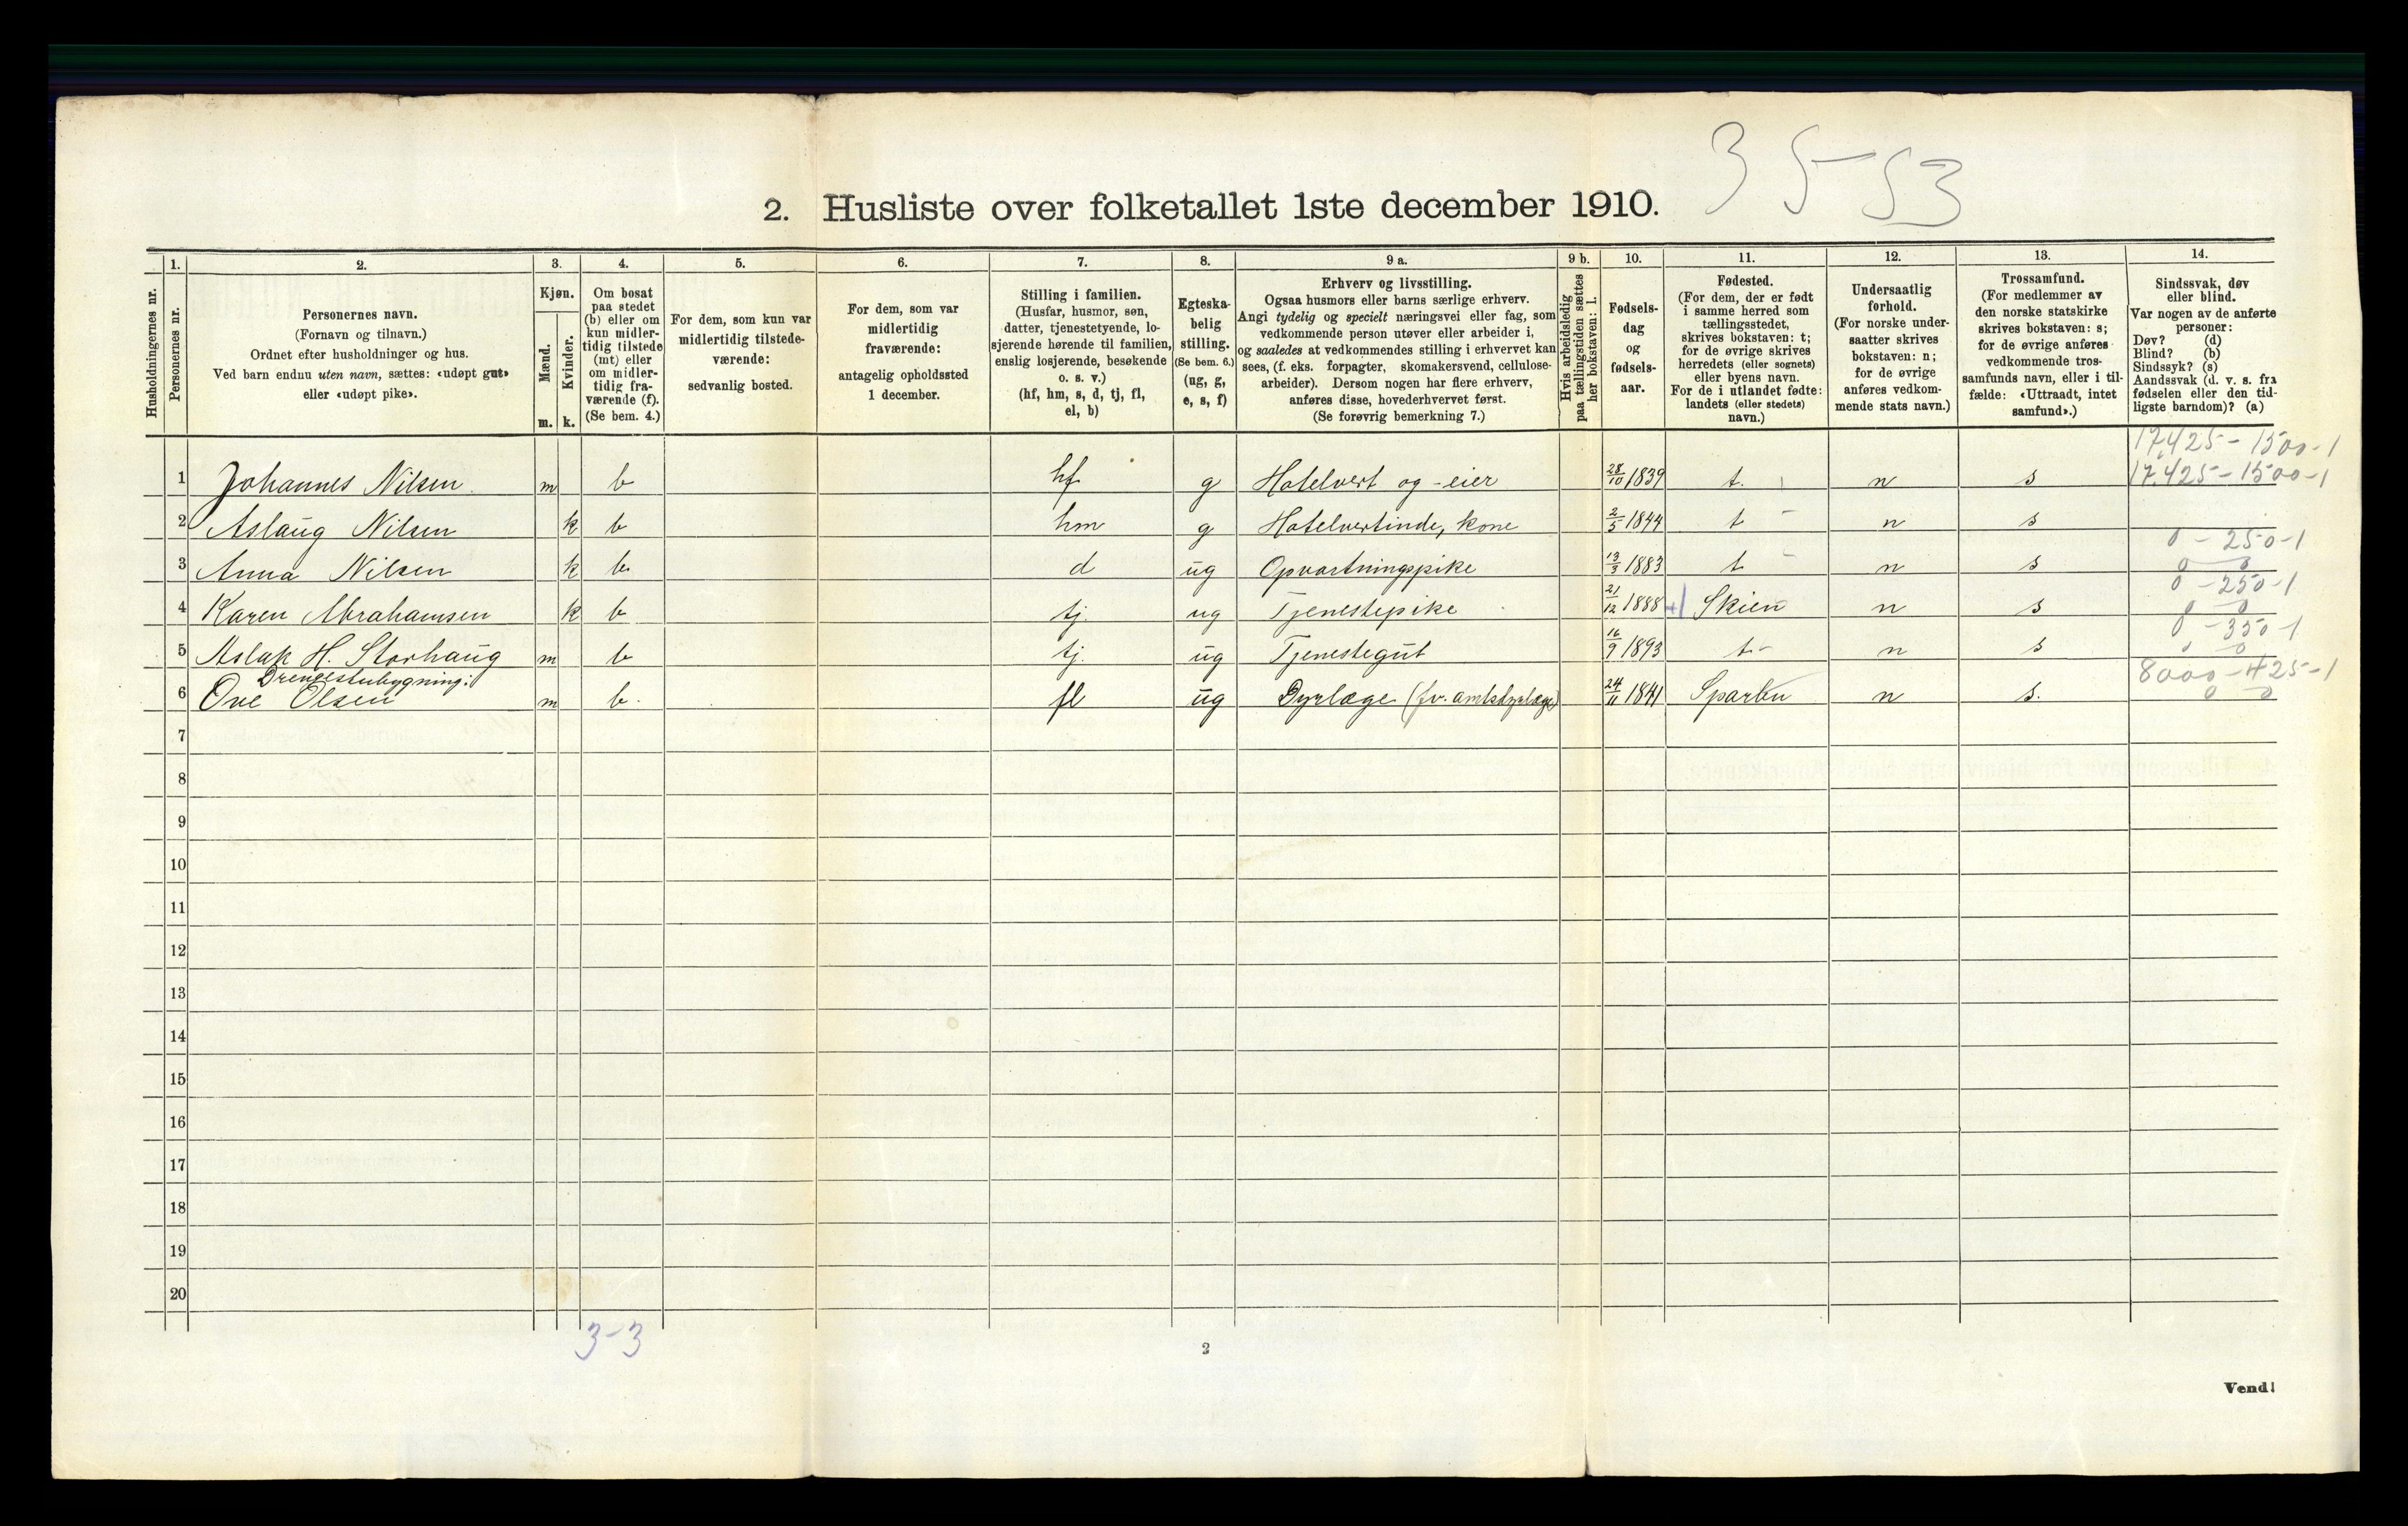 3 5 53
2. Husliste over folketallet 1ste december 1910.
Husholdningernes nr.
1. 2. 3. 4. 5. 6. 7. 8. 9 a. 9 b. 10. 11. 12. 13. 14.
Personernes nr.
Personernes navn.
(Fornavn og tilnavn.)
Ordnet efter husholdninger og hus.
Ved barn endnu uten navn, sættes: «udøpt gut»
eller «udøpt pike».
Kjøn.
Mænd.
Kvinder.
m. k.
Om bosat
paa stedet
(b) eller om
kun midler-
tidig tilstede
(mt) eller
om midler-
tidig fra-
værende (f).
(Se bem. 4.)
For dem, som kun var
midlertidig tilstede-
værende:
sedvanlig bosted.
For dem, som var
midlertidig
fraværende:
antagelig opholdssted
1 december.
Stilling i familien.
(Husfar, husmor, søn,
datter, tjenestetyende, lo-
sjerende hørende til familien,
enslig losjerende, besøkende
o. s. v.)
(hf, hm, s, d, tj, fl,
el, b)
Egteska-
belig
stilling.
(Se bem. 6.)
(ug, g,
e, s, f)
Erhverv og livsstilling.
Ogsaa husmors eller barns særlige erhverv.
Angi tydelig og specielt næringsvei eller fag, som
vedkommende person utøver eller arbeider i,
og saaledes at vedkommendes stilling i erhvervet kan
sees, (f. eks. forpagter, skomakersvend, cellulose-
arbeider). Dersom nogen har flere erhverv,
anføres disse, hovederhvervet først.
(Se forøvrig bemerkning 7.)
Hvis arbeidsledig
paa tællingstiden sættes
her bokstaven: l.
Fødsels-
dag
og
fødsels-
aar.
Fødested.
(For dem, der er født
i samme herred som
tællingsstedet,
skrives bokstaven: t;
for de øvrige skrives
herredets (eller sognets)
eller byens navn.
For de i utlandet fødte:
landets (eller stedets)
navn.)
Undersaatlig
forhold.
(For norske under-
saatter skrives
bokstaven: n;
for de øvrige
anføres vedkom-
mende stats navn.)
Trossamfund.
(For medlemmer av
den norske statskirke
skrives bokstaven: s;
for de øvrige anføres
vedkommende tros-
samfunds navn, eller i til-
fælde: «Uttraadt, intet
samfund».)
Sindssvak, døv
eller blind.
Var nogen av de anførte
personer:
Døv? (d)
Blind? (b)
Sindssyk? (s)
Aandssvak (d. v. s. fra
fødselen eller den tid-
ligste barndom)? (a)
17,425 - 1500-1
1 Johannes Nilsen m b hf g Hotelvert og -eier 28/10 1839 t. n s 17,425 - 1500-1
2 Aslaug Nilsen k b hm g Hotelvertinde, kone 2/5 1844 t - n s
0 - 250-1
3 Anna Nilsen k b. d ug Opvartningspike 13/3 1883 t - n s 0 0
0 - 250-1
4 Karen Abrahamsen k b tj. ug Tjenestepike 21/12 1888 +1 Skien n s 0 - 0
0 - 350-1
5 Aslak H. Storhaug m b tj. ug Tjenestegut 16/9 1893 t - n s 0
Drengestubygning:
8000 - 425-1
6 Ove Olsen m b. fl ug Dyrlæge (fv. amtsdyrlæge) 24/11 1841 Sparbu n s. 0 0
7
8
9
10
11
12
13
14
15
16
17
18
19
20
3-3
2
Vend!